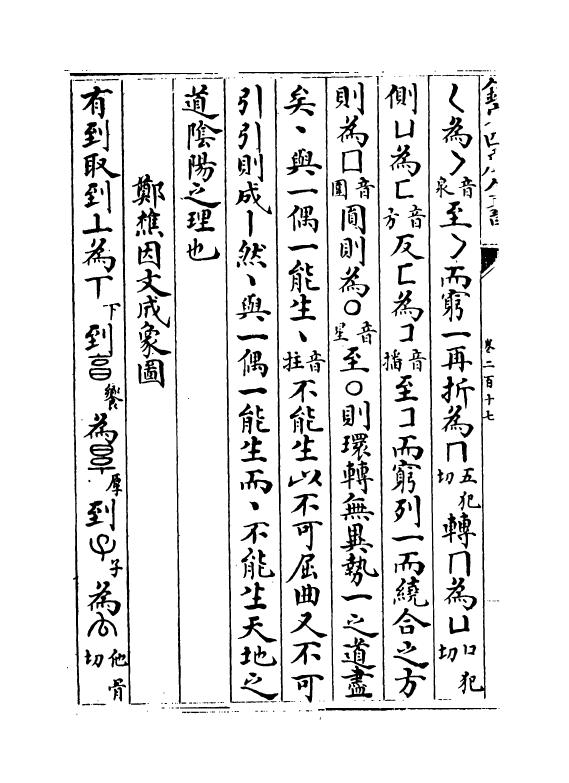 卷二百十七
乀為㇏音泉至㇏而窮一再折為冂五犯切轉冂為凵口犯切
側凵為匚音方反匚為コ音播至コ而窮列一而繞合之方
則為囗音圍圓則為○音星至○則環轉無異勢一之道盡
矣丶與一偶一能生丶音拄不能生以不可屈曲又不可
引引則成丨然丶與一偶一能生而丶不能生天地之
道陰陽之理也
鄭樵因文成象圖
有到取到丄為丅下到亯饗為㫗厚到子為𠫓他骨切